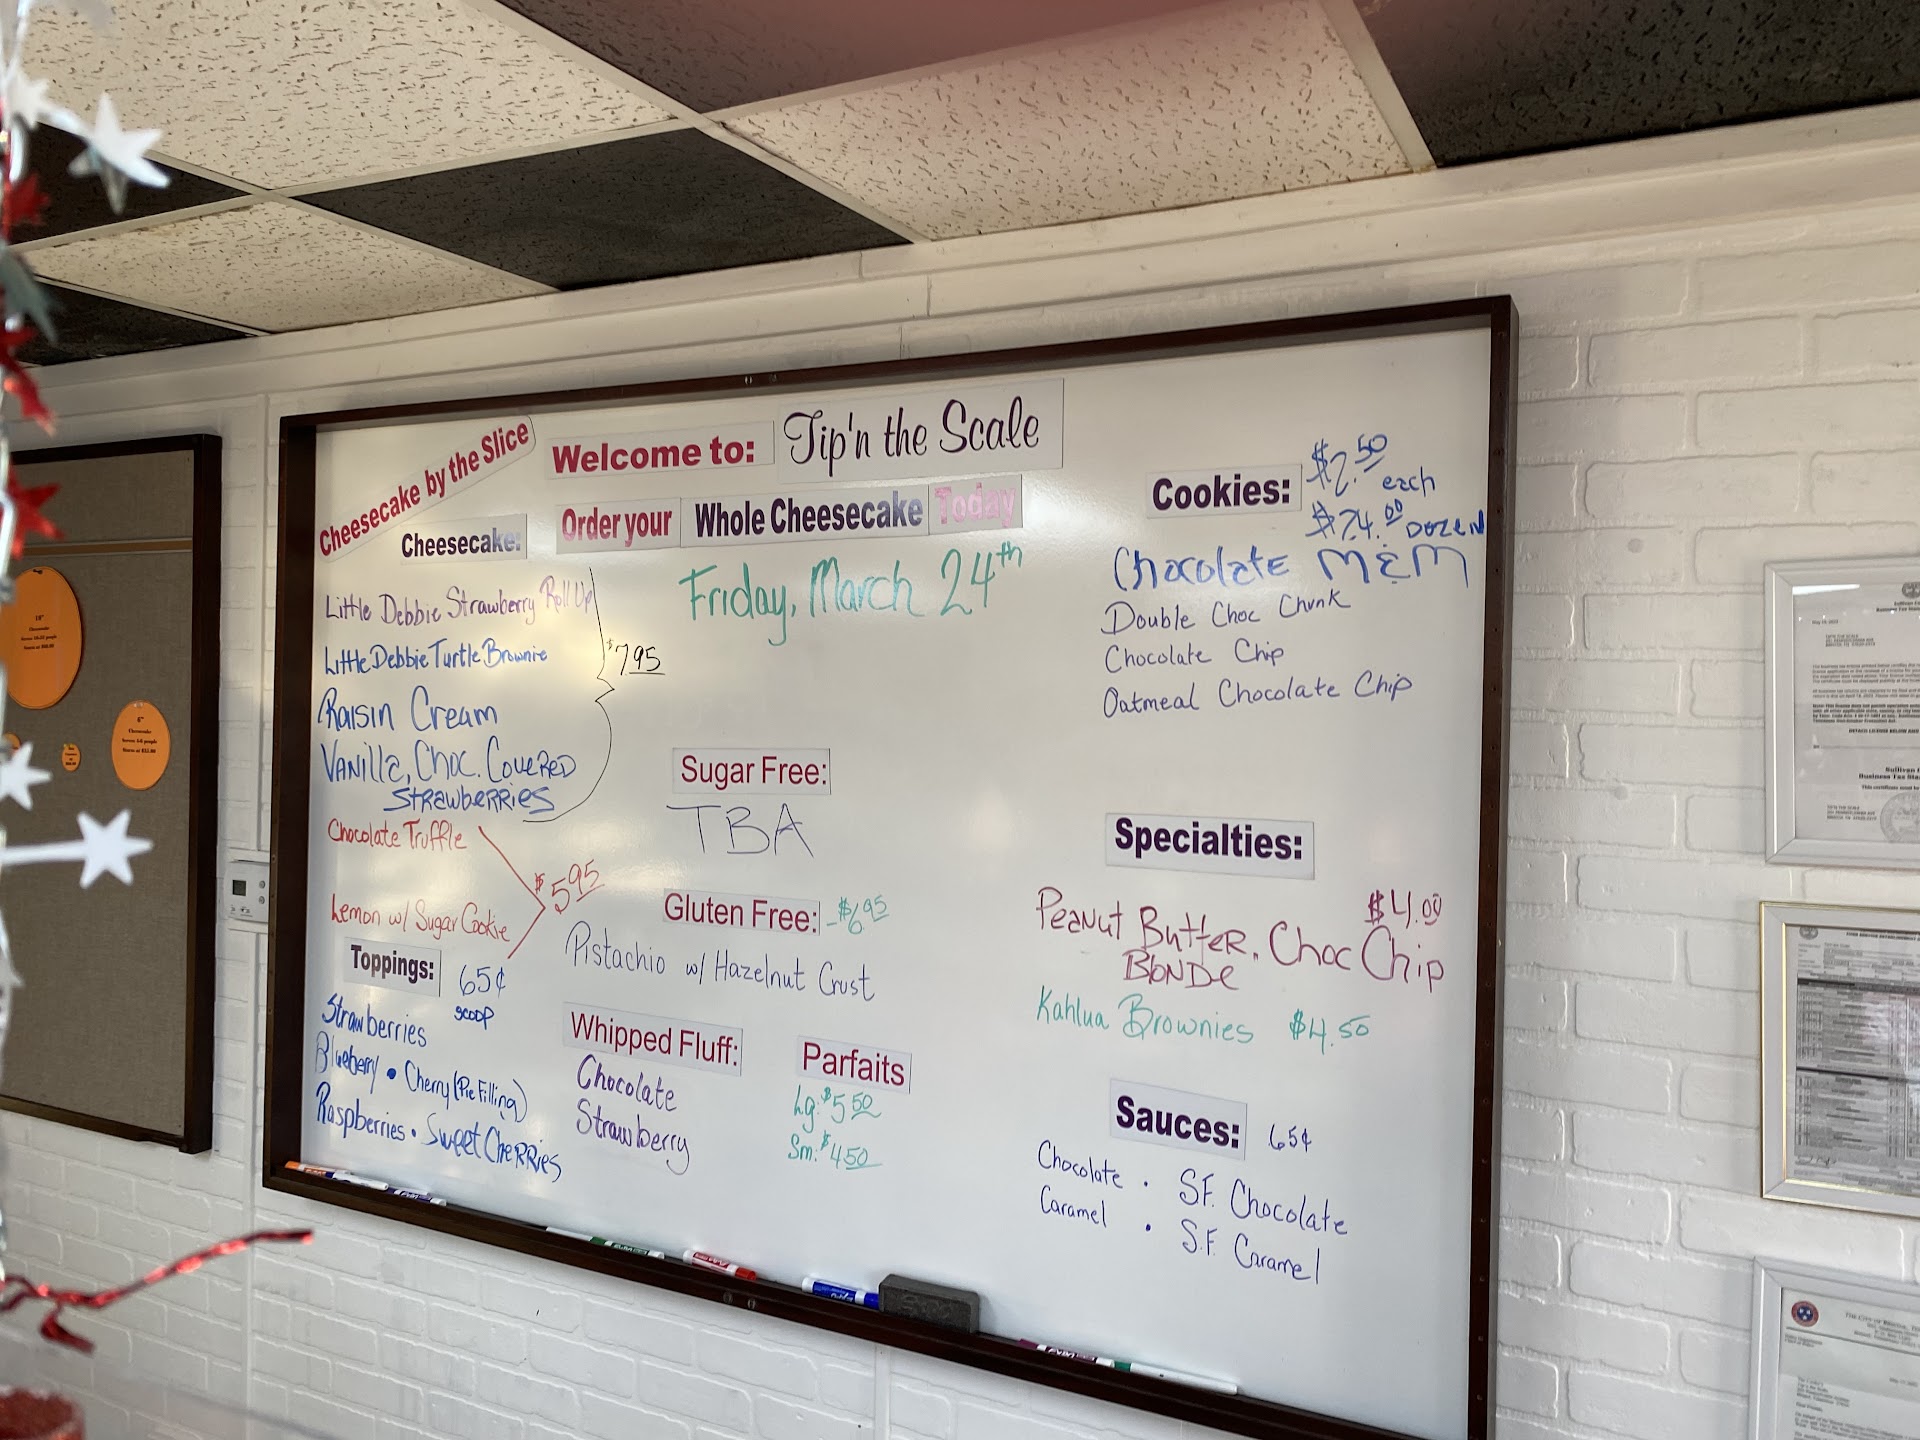 Cheesecake by the Slice
Welcome to: Tip'n the Scale
Order your Whole Cheesecake Today
Friday, March 24th
Cheesecake:
Little Debbie Strawberry Roll Up
Little Debbie Turtle Brownie
$795
Raisin Cream
Vanilla, Choc. Covered
Strawberries
Chocolate Truffle
$595
Lemon w/ Sugar Cookie
Toppings: 65¢
scoop
Strawberries
Blueberry • Cherry (Pie Filling)
Raspberries • Sweet Cherries
Sugar Free:
TBA
Gluten Free: -$6.95
Pistachio w/ Hazelnut Crust
Whipped Fluff:
Chocolate
Strawberry
Parfaits
Lg. $550
Sm. $450
Cookies: $2.50 each
$24.00 Dozen
Chocolate M&M
Double Choc Chunk
Chocolate Chip
Oatmeal Chocolate Chip
Specialties:
$4.00
Peanut Butter, Choc Chip
Blonde
Kahlua Brownies $4.50
Sauces: 65¢
Chocolate • SF. Chocolate
Caramel • S.F. Caramel
10"
Cheesecake
6"
Cheesecake